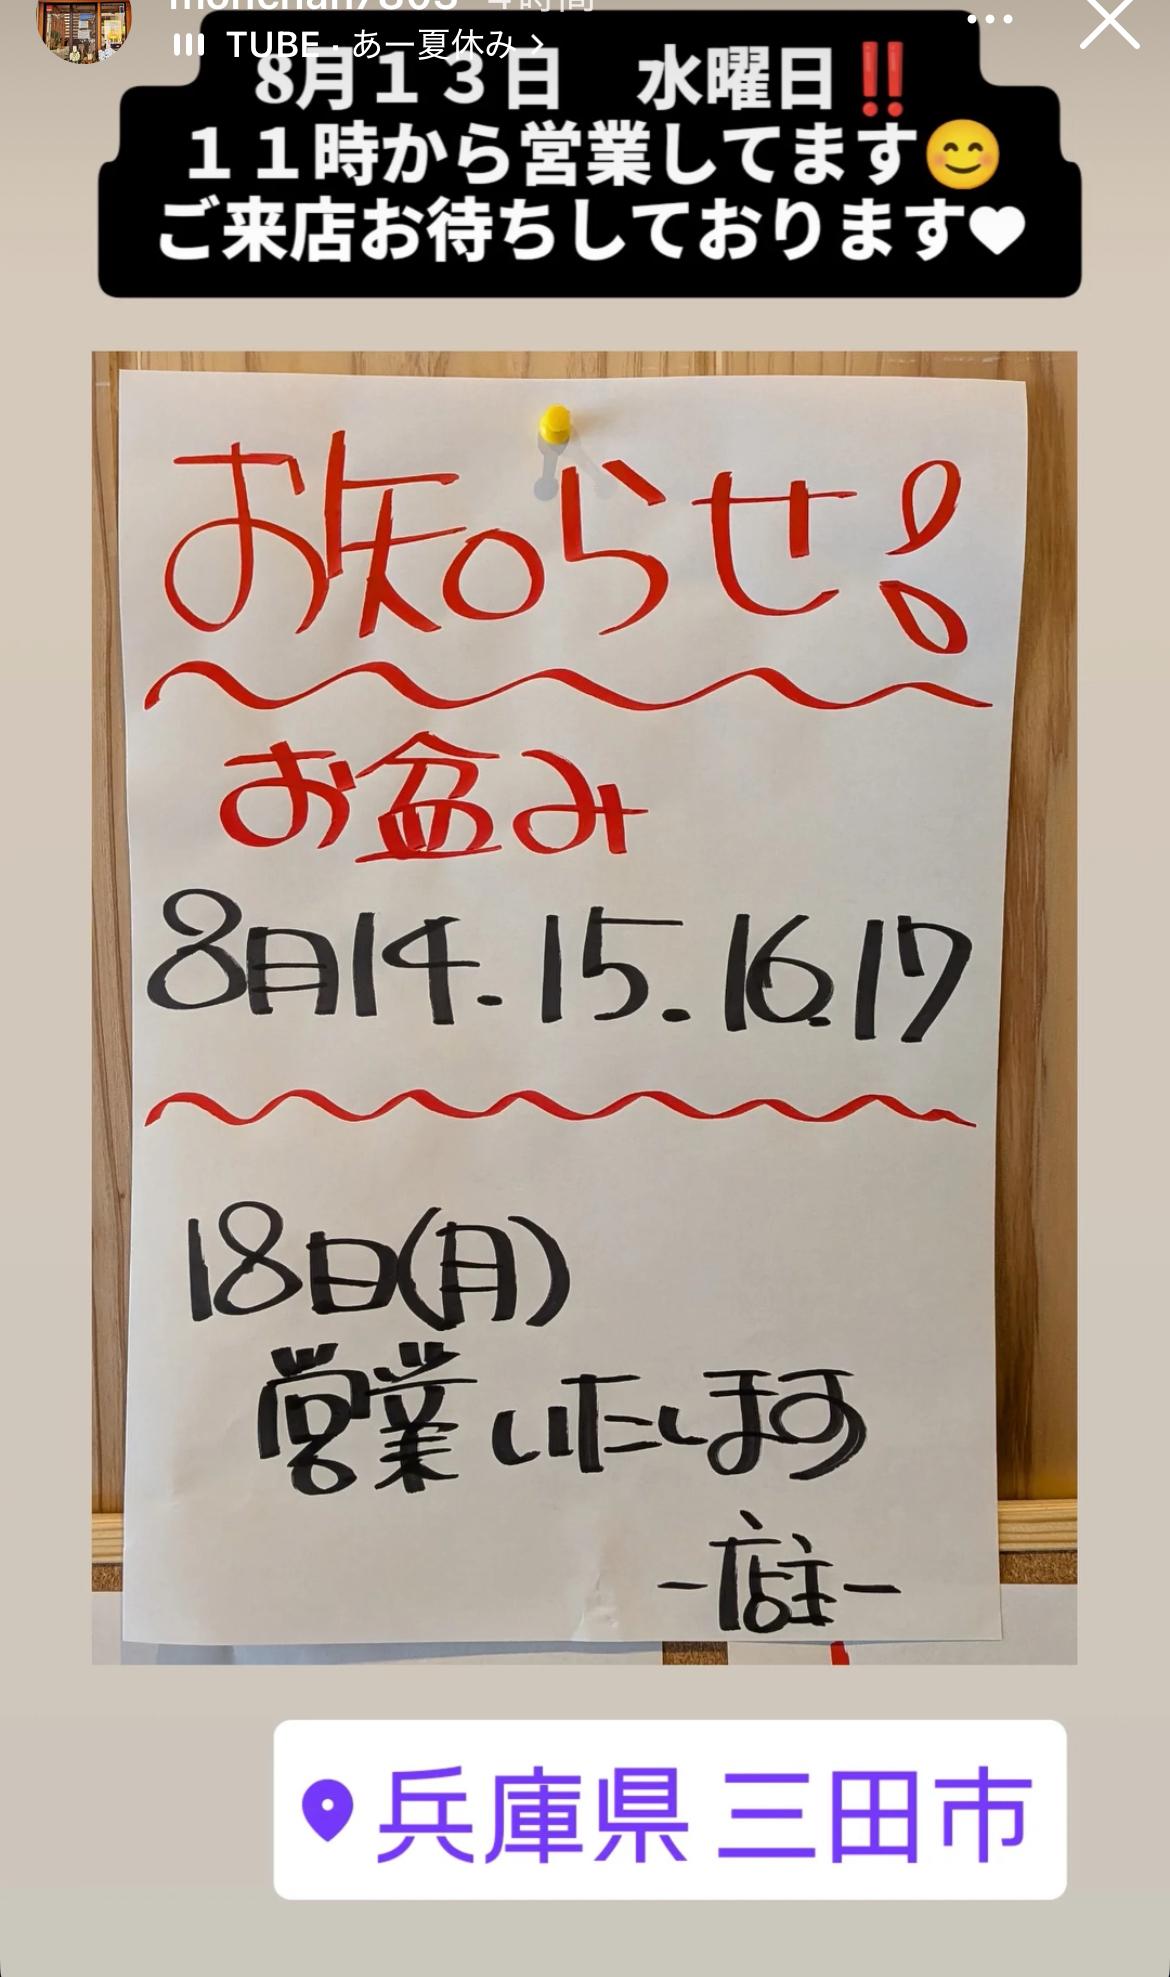 4時間
TUBE · あー夏休み >
8月１３日　水曜日‼️
１１時から営業してます😊
ご来店お待ちしております♥
お知らせ!
お盆み
8月14.15.16.17
18日(月)
営業いたします
-店主-
兵庫県 三田市